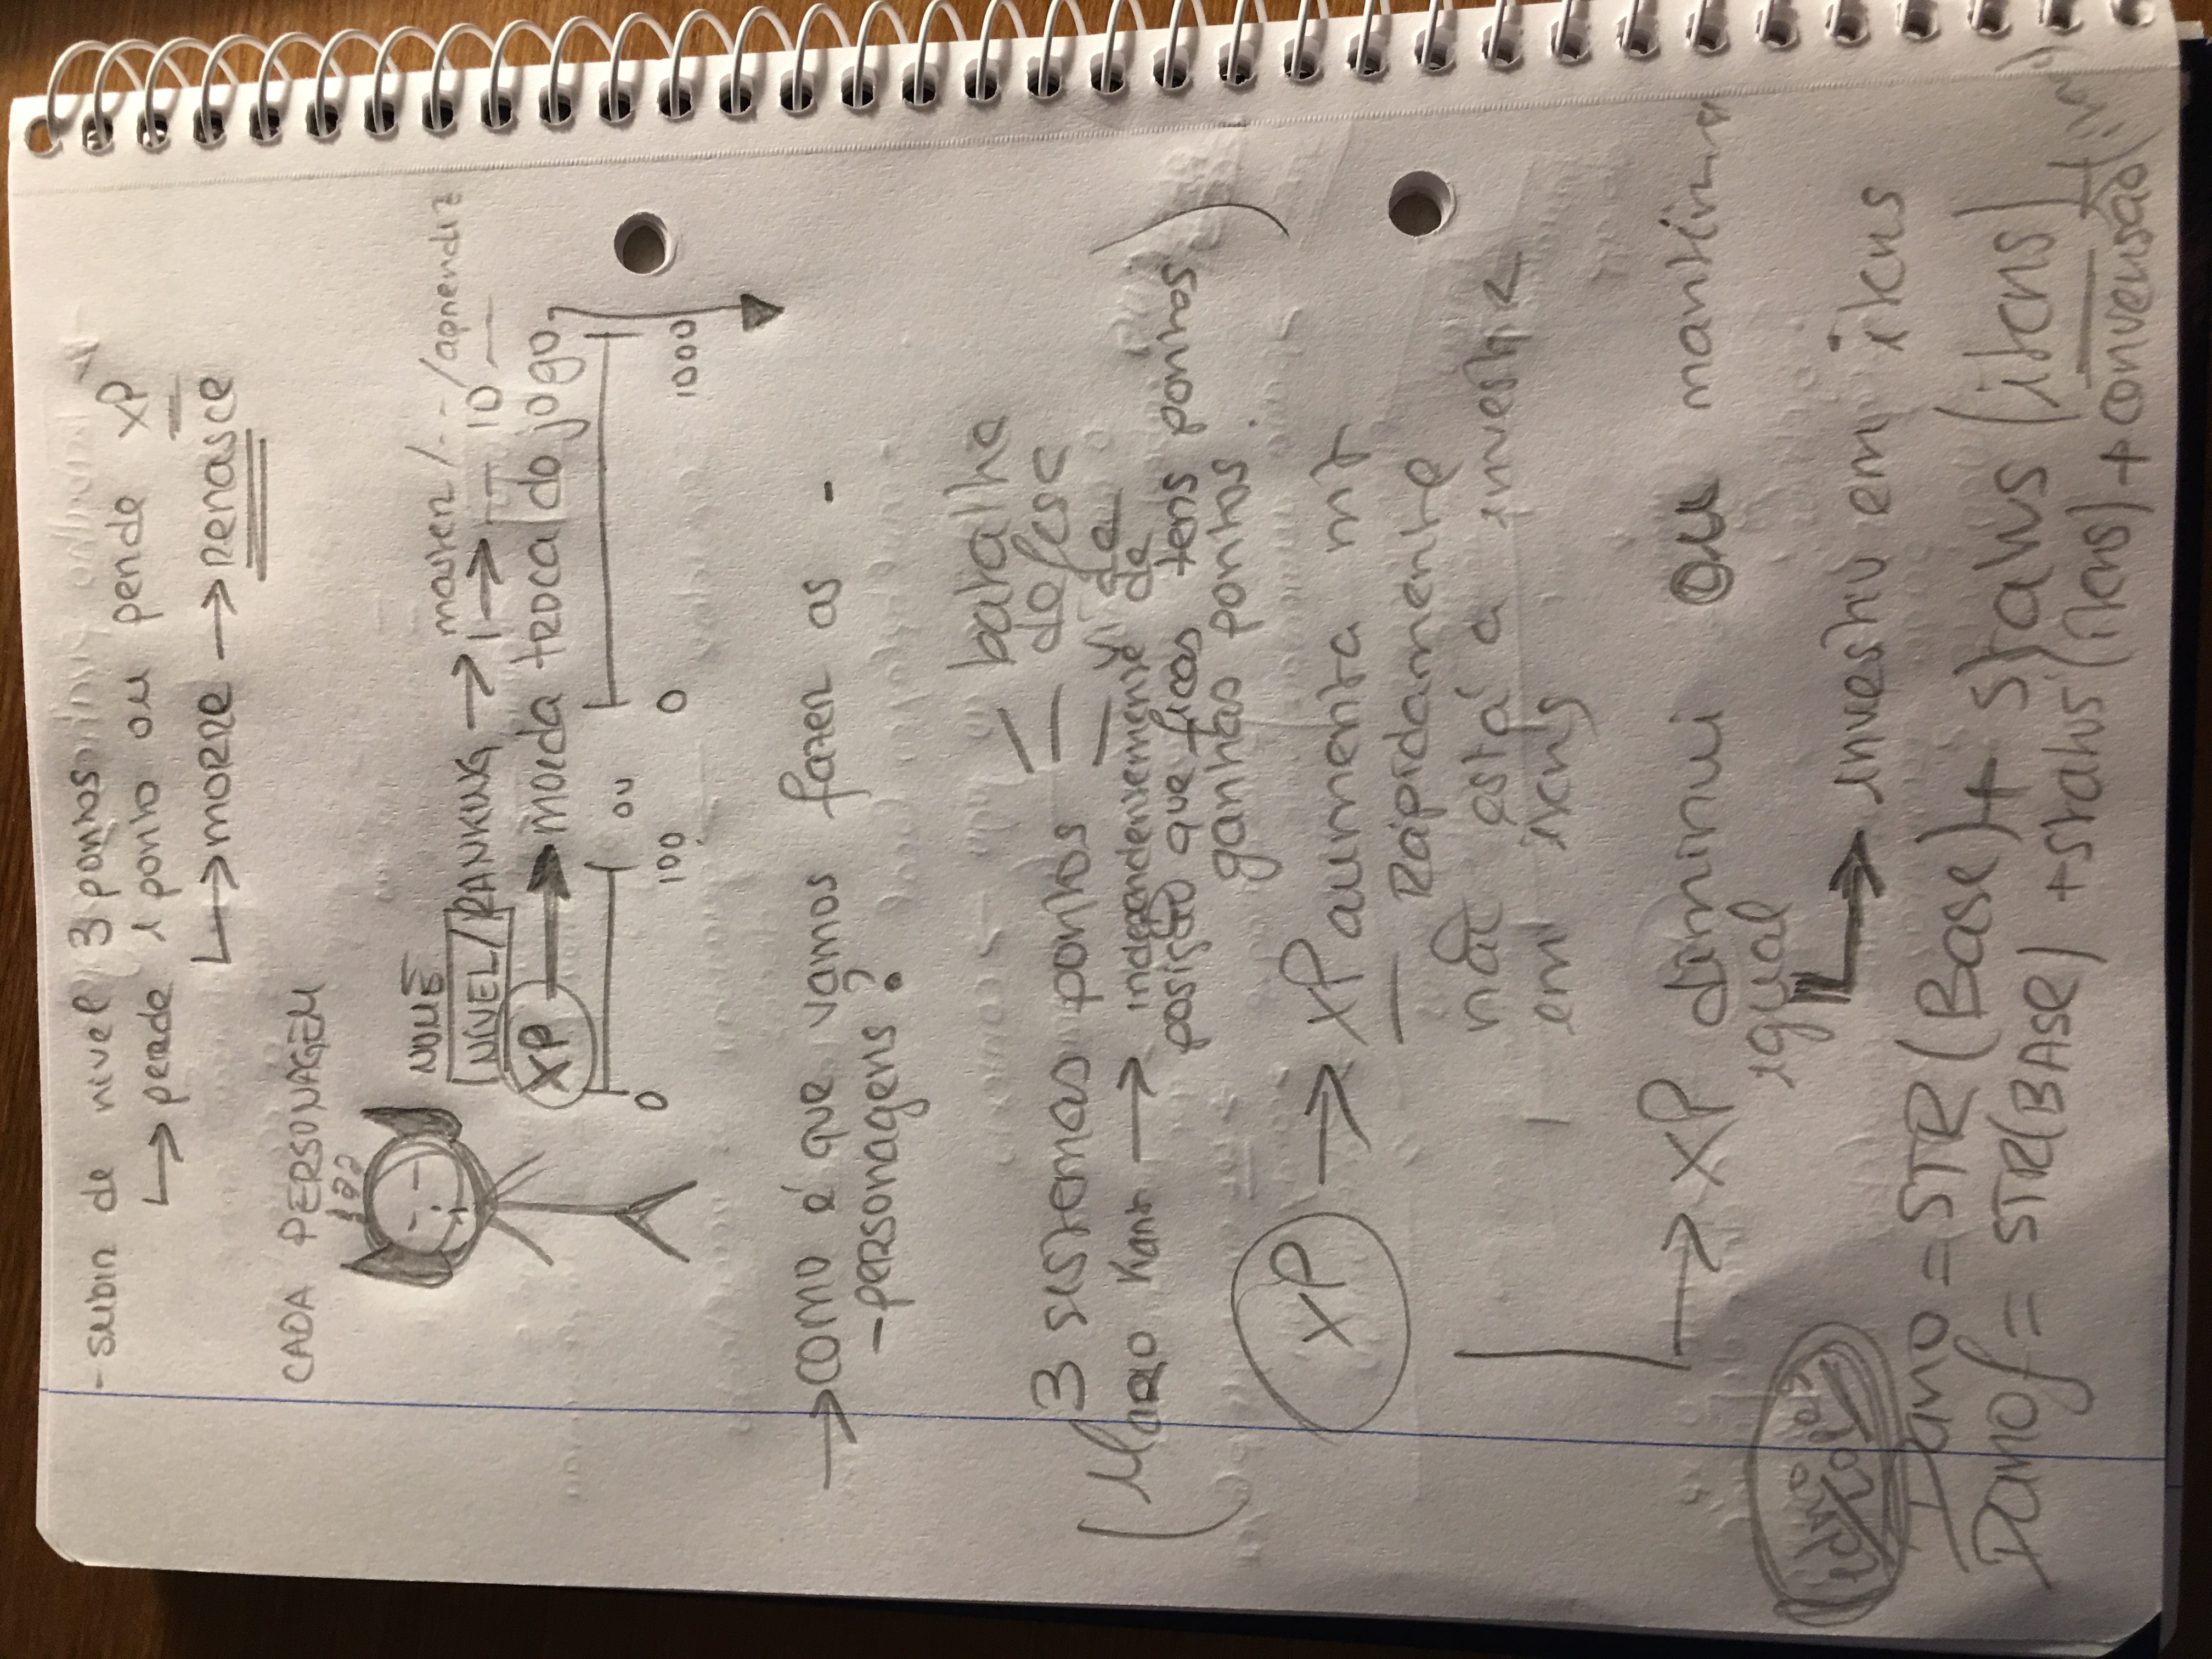 - subir de nível 3 pontos
↳ perde 1 ponto ou perde XP
↳ morre → renasce
CADA PERSONAGEM
NOME
master / - - / aprendiz
NÍVEL / RANKING → 1 → -- 10 --
XP → moeda troca do jogo
0 100 ou 0 1000
→ como é que vamos fazer as -
- personagens?
batalha
3 sistemas pontos defesa
vida
(Mario Kart → independentemente de
posição que ficas tens pontos
ganhas pontos.)
XP → XP aumenta mt
Rápidamente
não está a investir
em itens
→ XP diminui ou
igual
↳ investiu em itens
Dano = STR (Base) + status (itens)
Dano f = STR (BASE) + status (itens) + conversão